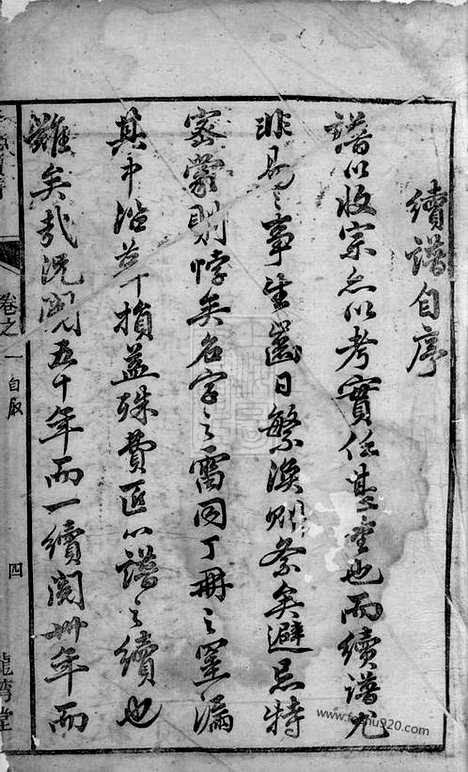 續譜自序
譜以收宗亦以考實任甚重也而續譜尤
非易易事生齒日繁渙則紊矣避忌特
密蒙則悖矣名字之雷同丁冊之罣漏
其中沿革損益殊費匠心譜之續也
難矣哉況閱五十年而一續閱卅年而
卷之一 自序 四
www.fozhu920.com